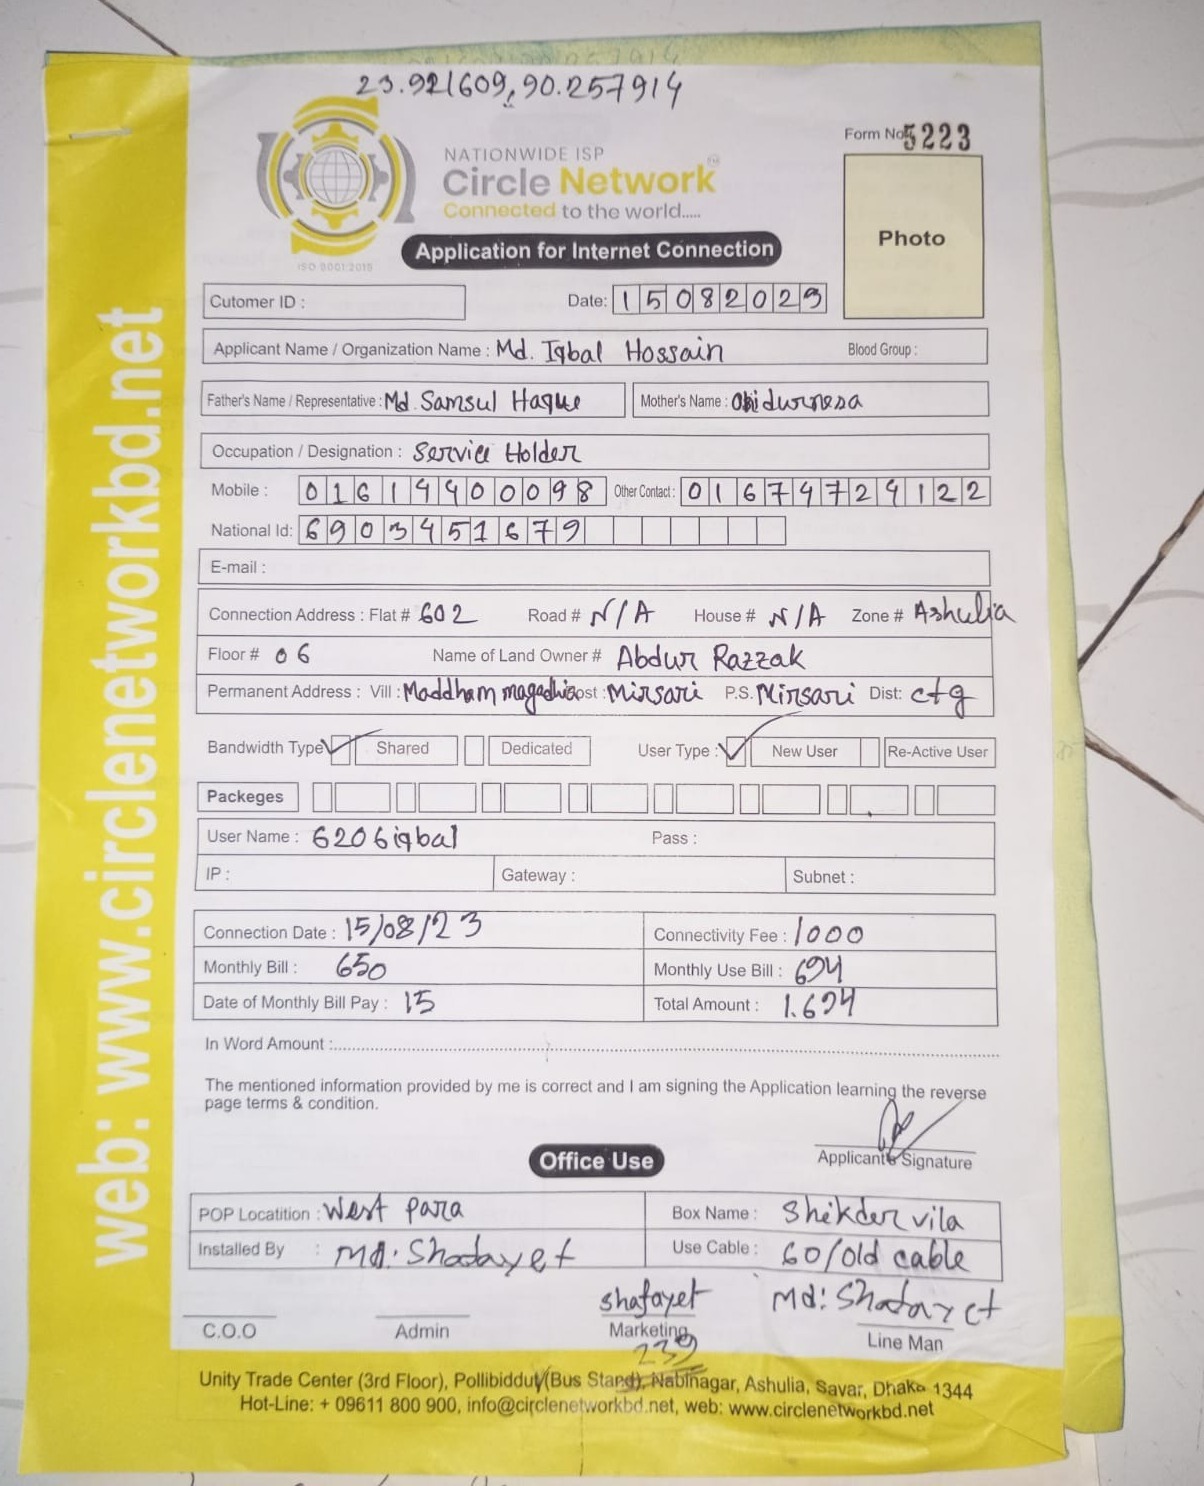 23.921609,90.257914
Form No 5223
NATIONWIDE ISP
Circle Network
Connected to the world.....
ISO 9001:2015
Photo
Application for Internet Connection
Cutomer ID :
Date: 15082023
Applicant Name / Organization Name : Md. Iqbal Hossain Blood Group :
Father's Name / Representative : Md. Samsul Haque Mother's Name :
Occupation / Designation : Service Holder
Mobile : 01614400098 Other Contact : 01674724122
National Id: 6903451679
E-mail :
Connection Address : Flat # 602 Road # N/A House # N/A Zone # Ashulia
Floor # 06 Name of Land Owner # Abdur Razzak
Permanent Address : Vill : Maddham Post : Mirsari P.S. Mirsari Dist: ctg
Bandwidth Type Shared Dedicated User Type : New User Re-Active User
Packeges
User Name : 6206iqbal Pass :
IP : Gateway : Subnet :
Connection Date : 15/08/23 Connectivity Fee : 1000
Monthly Bill : 650 Monthly Use Bill : 694
Date of Monthly Bill Pay : 15 Total Amount : 1.694
In Word Amount :
The mentioned information provided by me is correct and I am signing the Application learning the reverse
page terms & condition.
Applicants Signature
Office Use
POP Locatition : West Para Box Name : Shikder vila
Installed By : Md. Shadayet Use Cable : 60/old cable
shafayet
C.O.O Admin Marketing Line Man
239
Unity Trade Center (3rd Floor), Pollibiddut (Bus Stand), Nabinagar, Ashulia, Savar, Dhaka 1344
Hot-Line: + 09611 800 900, info@circlenetworkbd.net, web: www.circlenetworkbd.net
web: www.circlenetworkbd.net